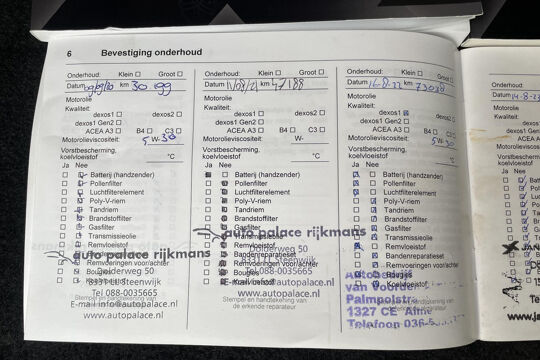 6 Bevestiging onderhoud
Onderhoud: Klein ☐ Groot ☐
Datum km 30
Motorolie
Kwaliteit:
dexos1 ☐ dexos2 ☐
dexos1 Gen2 ☐
ACEA A3 ☐ B4 ☐ C3 ☐
Motorolieviscositeit: 5 W-30
Vorstbescherming,
koelvloeistof °C
Ja Nee
Batterij (handzender)
Pollenfilter
Luchtfilterelement
Poly-V-riem
Tandriem
Brandstoffilter
Gasfilter
Transmissieolie
Remvloeistof
auto palace rijkmans
Remvoeringen voor/achter
Bougies
Dolderweg 50
8331 LL Steenwijk
Tel 088-0035665
Stempel en handtekening van
E-mail info@autopalace.nl
www.autopalace.nl
Onderhoud: Klein ☐ Groot ☐
Datum 11/08/21 km 47188
Motorolie
Kwaliteit:
dexos1 ☐ dexos2 ☐
dexos1 Gen2 ☐
ACEA A3 ☐ B4 ☐ C3 ☐
Motorolieviscositeit: W-
Vorstbescherming,
koelvloeistof °C
Ja Nee
Batterij (handzender)
Pollenfilter
Luchtfilterelement
Poly-V-riem
Tandriem
Brandstoffilter
Gasfilter
Transmissieolie
auto palace rijkmans
Remvloeistof
Bandenreparatieset
Remvoeringen voor/achter
Dolderweg 50
Koelvloeistof
Steenwijk
Tel 088-0035665
E-mail info@autopalace.nl
www.autopalace.nl
Stempel en handtekening van
de erkende reparateur
Onderhoud: Klein ☐ Groot ☐
Datum 16-8-22 km 73038
Motorolie
Kwaliteit:
dexos1 dexos2 ☐
dexos1 Gen2 ☐
ACEA A3 ☐ B4 ☐ C3 ☐
Motorolieviscositeit: 5 W-30
Vorstbescherming,
koelvloeistof °C
Ja Nee
Batterij (handzender)
Pollenfilter
Luchtfilterelement
Poly-V-riem
Tandriem
Brandstoffilter
Gasfilter
Transmissieolie
Remvloeistof
Bandenreparatieset
Remvoeringen voor/achter
Bougies
Koelvloeistof
van Voorden
1327 CE
Telefoon 036-5
Onderhoud:
Datum
Motorolie
Kwaliteit:
Motorolieviscositeit
Vorstbescherming,
koelvloeistof
Ja Nee